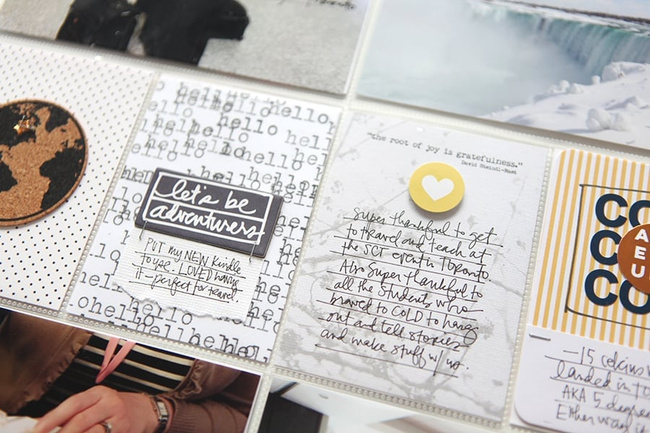 hello hello hello
let's be
adventurers
PUT my NEW Kindle
to use. LOVED having
it - perfect for travel.
"the root of joy is gratefulness."
David Steindl-Rast
super thankful to get
to travel and teach at
the SCT event in Toronto.
Also super thankful to
all the students who
braved to COLD to hang
out and tell stories
and make stuff w/ us.
CO
CO
CO
A
E
U
-15 celcius
landed in TO
AKA 5 degree
Either way it